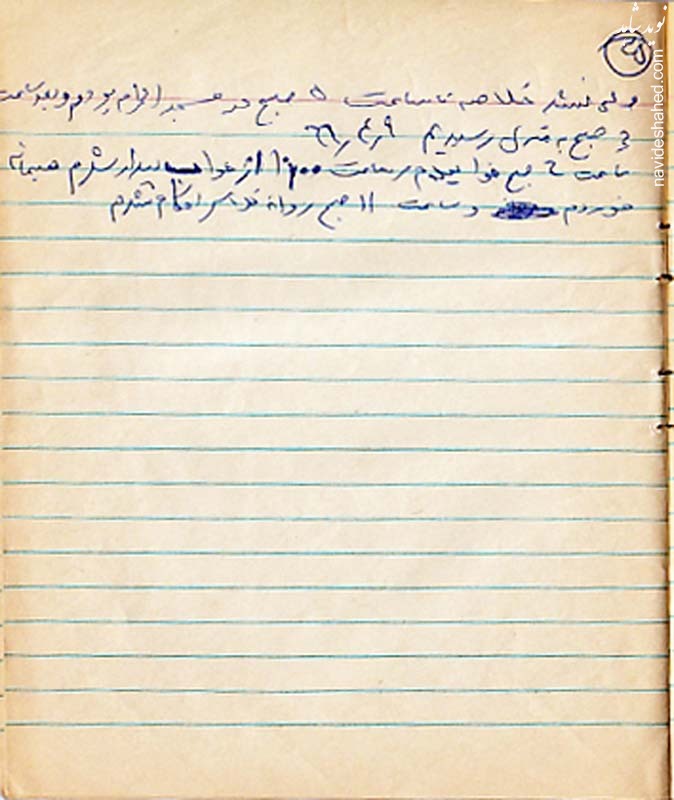 ۲۵
ولی نشد خلاصه تا ساعت ۵ صبح در مسجد الحرام بودم و بعد ساعت
۶ صبح به منزل رسیدیم ۹ر۴ر۶۶
ساعت ۶ صبح خوابیدم ساعت ۱۰/۰۰ از خواب بیدار شدم صبحانه
خوردم و ساعت ۱۱ صبح روانه شدم
نوید شاهد
navideshahed.com